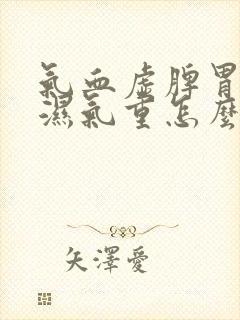 氣血虛脾胃
濕氣重怎麼
矢澤愛